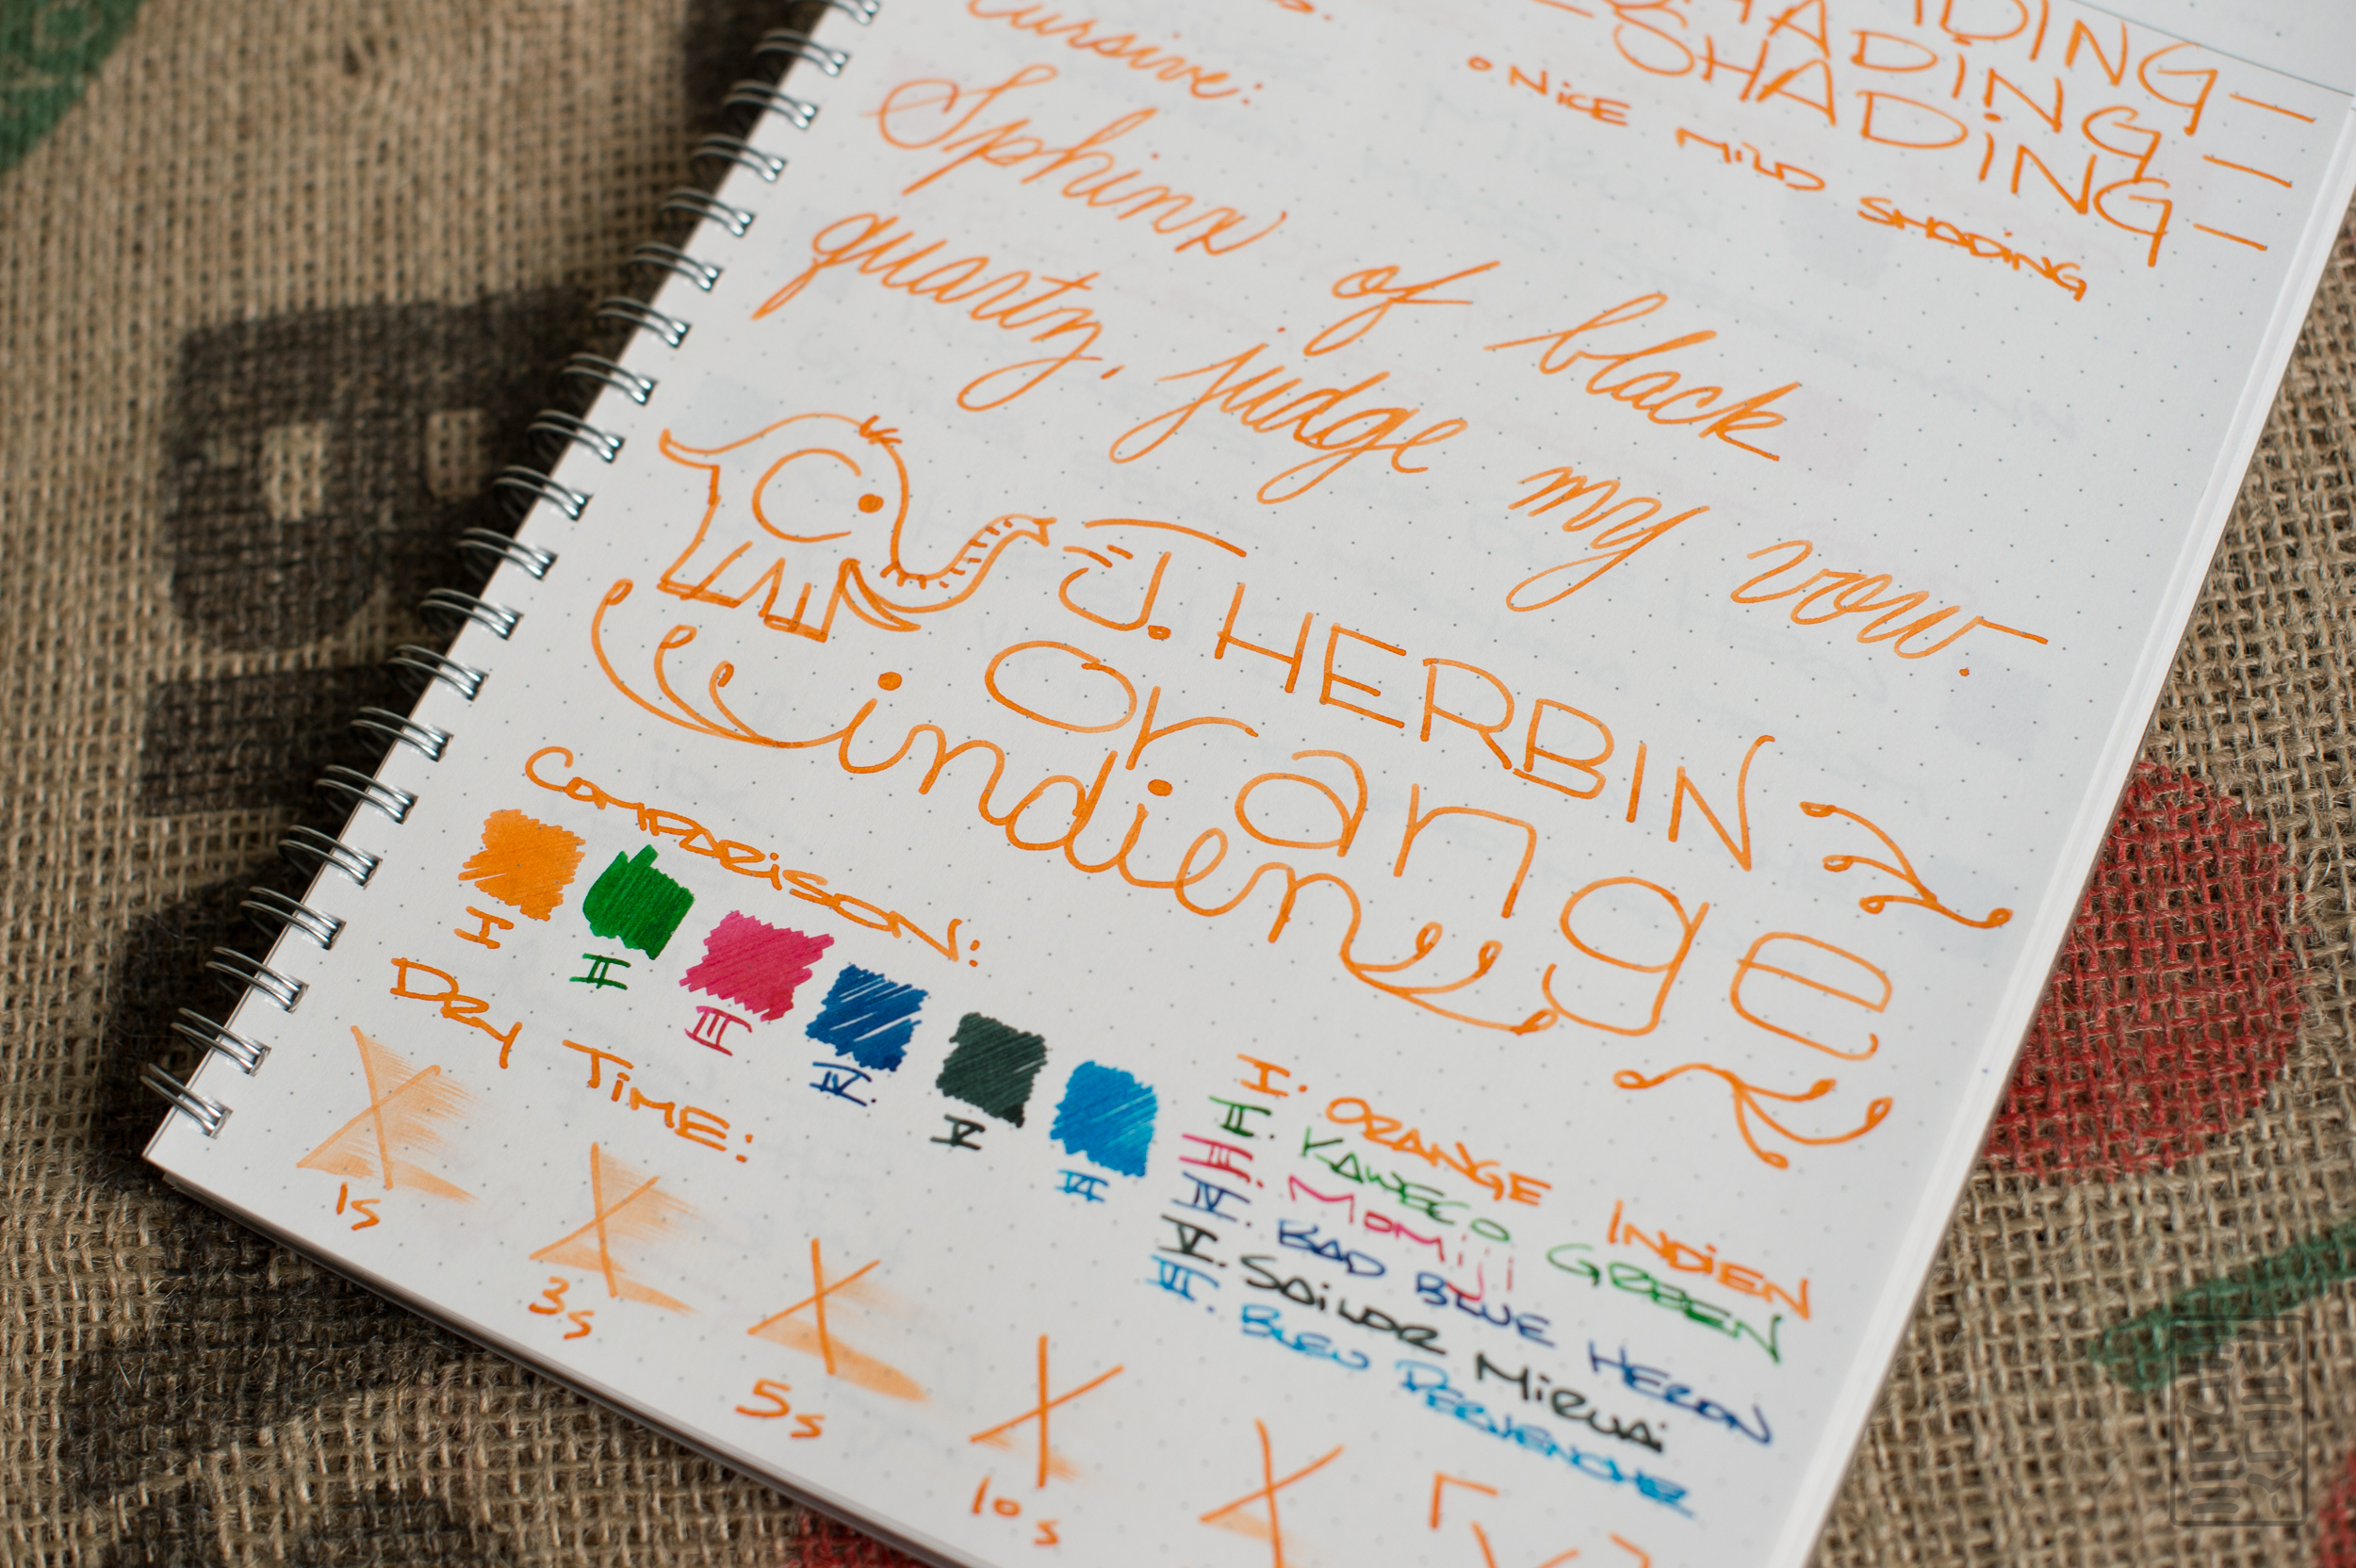 SHADING-
SHADING-
• NICE MILD SHADING
Cursive:
Sphinx of black
quartz, judge my vow.
J. HERBIN
orange
indien
COMPARISON:
I
II
III
IV.
V
VI
I. ORANGE INDIEN
II. KAWECO GREEN
III. MOMIJI
IV. BAD BLUE HERON
V. SAILOR MIRUAI
VI. BLEU PERVENCHE
DRY TIME:
1s
3s
5s
10s